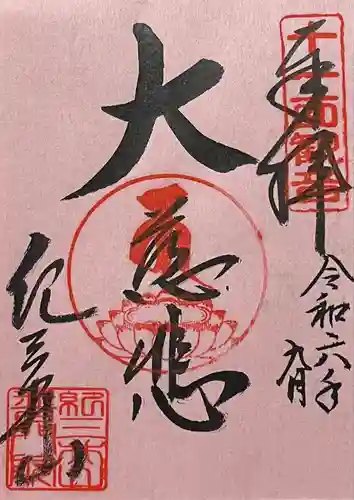 奉拝
令和六年
九月
大慈悲
紀三井山